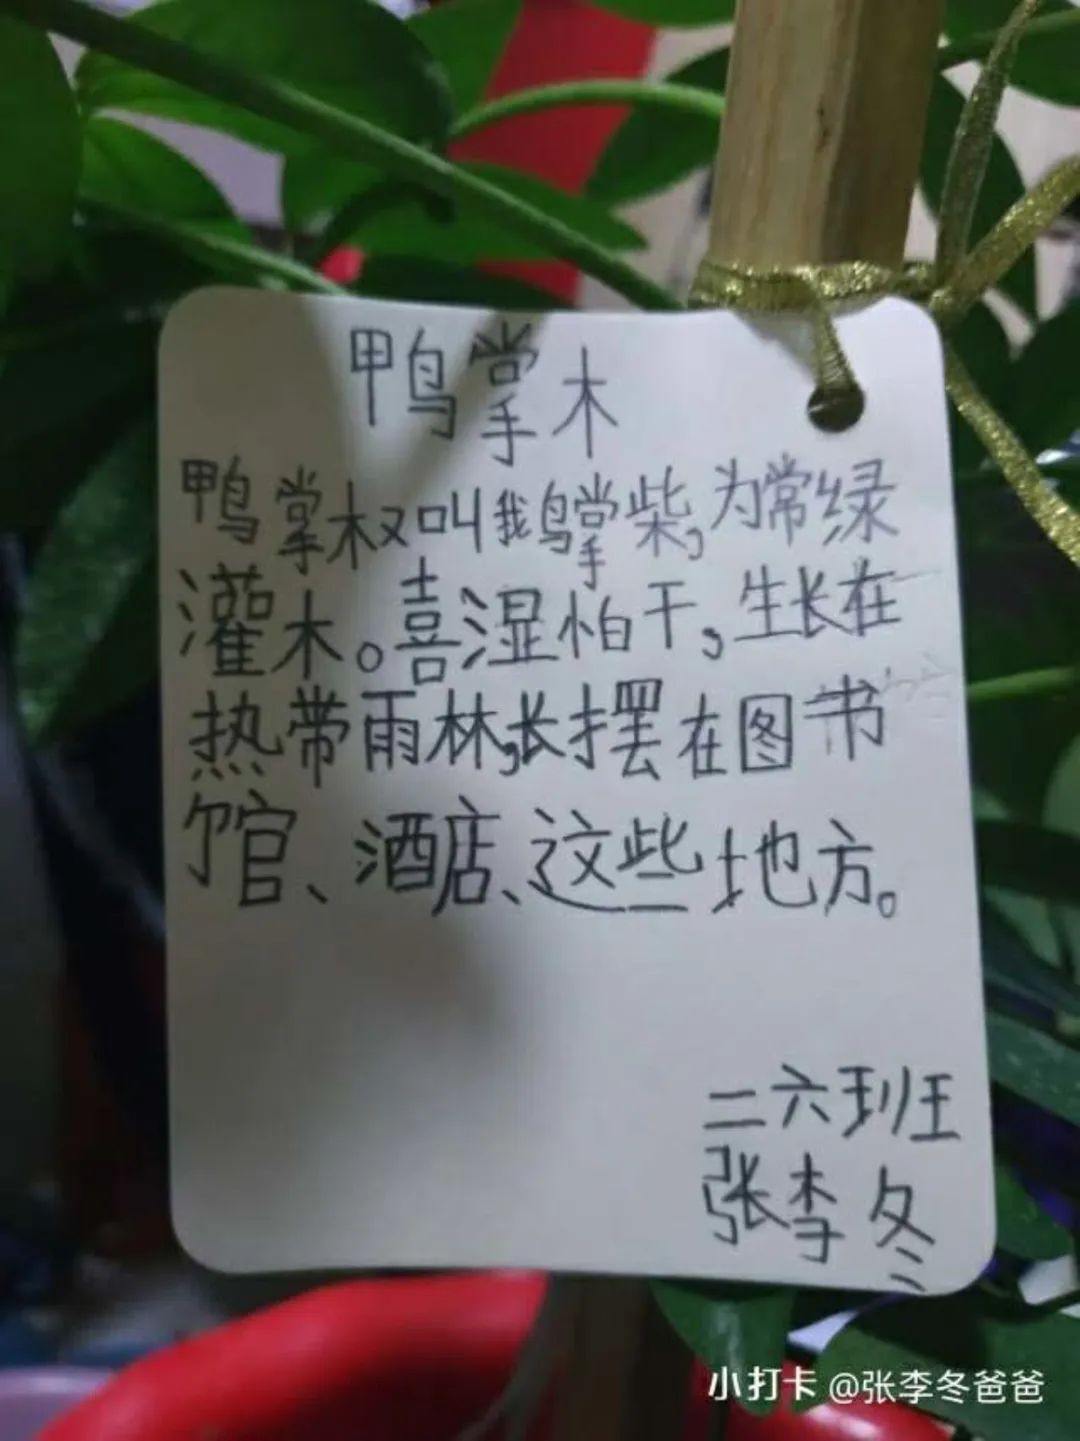 鸭掌木
鸭掌木又叫鹅掌柴,为常绿
灌木。喜湿怕干,生长在
热带雨林,长摆在图书
馆、酒店、这些地方。
二六班
张李冬
小打卡 @张李冬爸爸